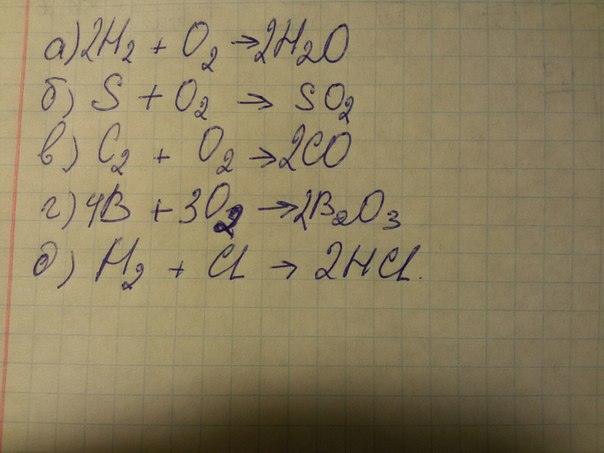 а) 2H₂ + O₂ → 2H₂O
б) S + O₂ → SO₂
в) C₂ + O₂ → 2CO
г) 4B + 3O₂ → 2B₂O₃
д) H₂ + Cl → 2HCl.